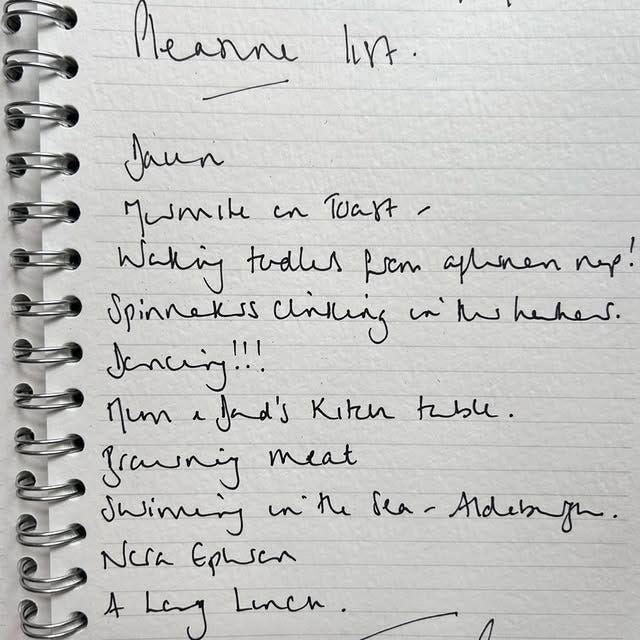 Pleasure list.
Dawn
Marmite on Toast -
Waking toddlers from afternoon nap!
Spinnakers clinking in the harbour.
Dancing!!!
Mum & Dad's Kitchen table.
Browning meat
Swimming in the Sea - Aldeburgh.
Nora Ephron
A Long Lunch.